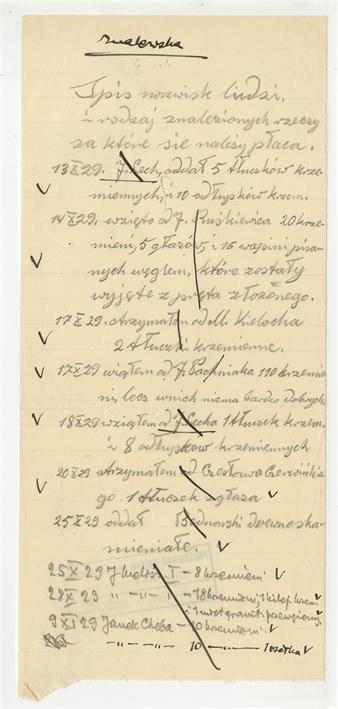 Spis nazwisk ludzi,
i rodzaj znalezionych rzeczy
za które się należy płaca.
13 X 29. J. Lech, oddał 5 tłuczków krze-
miennych, i 10 odłupków krzem.
14 X 29. wzięto od J. Puśkiewica 20 krze-
mieni, 5 głazów, i 16 wapini pisa-
nych węglem, które zostały
wyjęte z pręta złożonego.
17 X 29. otrzymałem od Kielocha
2 tłuczki krzemienne.
17 X 29 wziąłem od J. Pachniaka 110 krzemie
ni, lecz w nich niema bardzo dobrych.
18 X 29 wziąłem od J. Lecha 1 tłuczek krzem.
i 8 odłupków krzemiennych
20 X 29 otrzymałem od Czesława Czerwińskie
go 1 tłuczek z głaza
25 X 29 oddał Bednarski drewno ska-
mieniałe.
25 X 29 J - 8 krzemieni
28 X 29 " - 18 krzemieni, 1 kilof krzem.
9 XI 29 Janek Chęba - 10 krzemieni
" 10 " 1 osełka